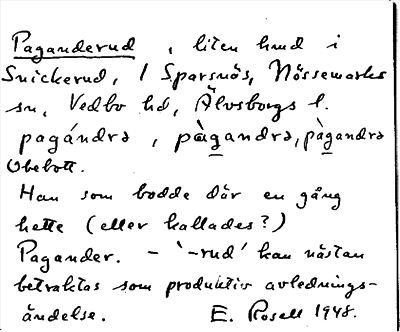 Paganderud, liten hmd i
Snickerud, / Sparsnäs, Nössemarks
sn, Vedbo hd, Älvsborgs l.
pagándrə, pàgandrə, pàgandrə
Obebott.
Han som bodde där en gång
hette (eller kallades?)
Pagander. – '-rud' kan nästan
betraktas som produktiv avlednings-
ändelse. E. Rosell 1948.